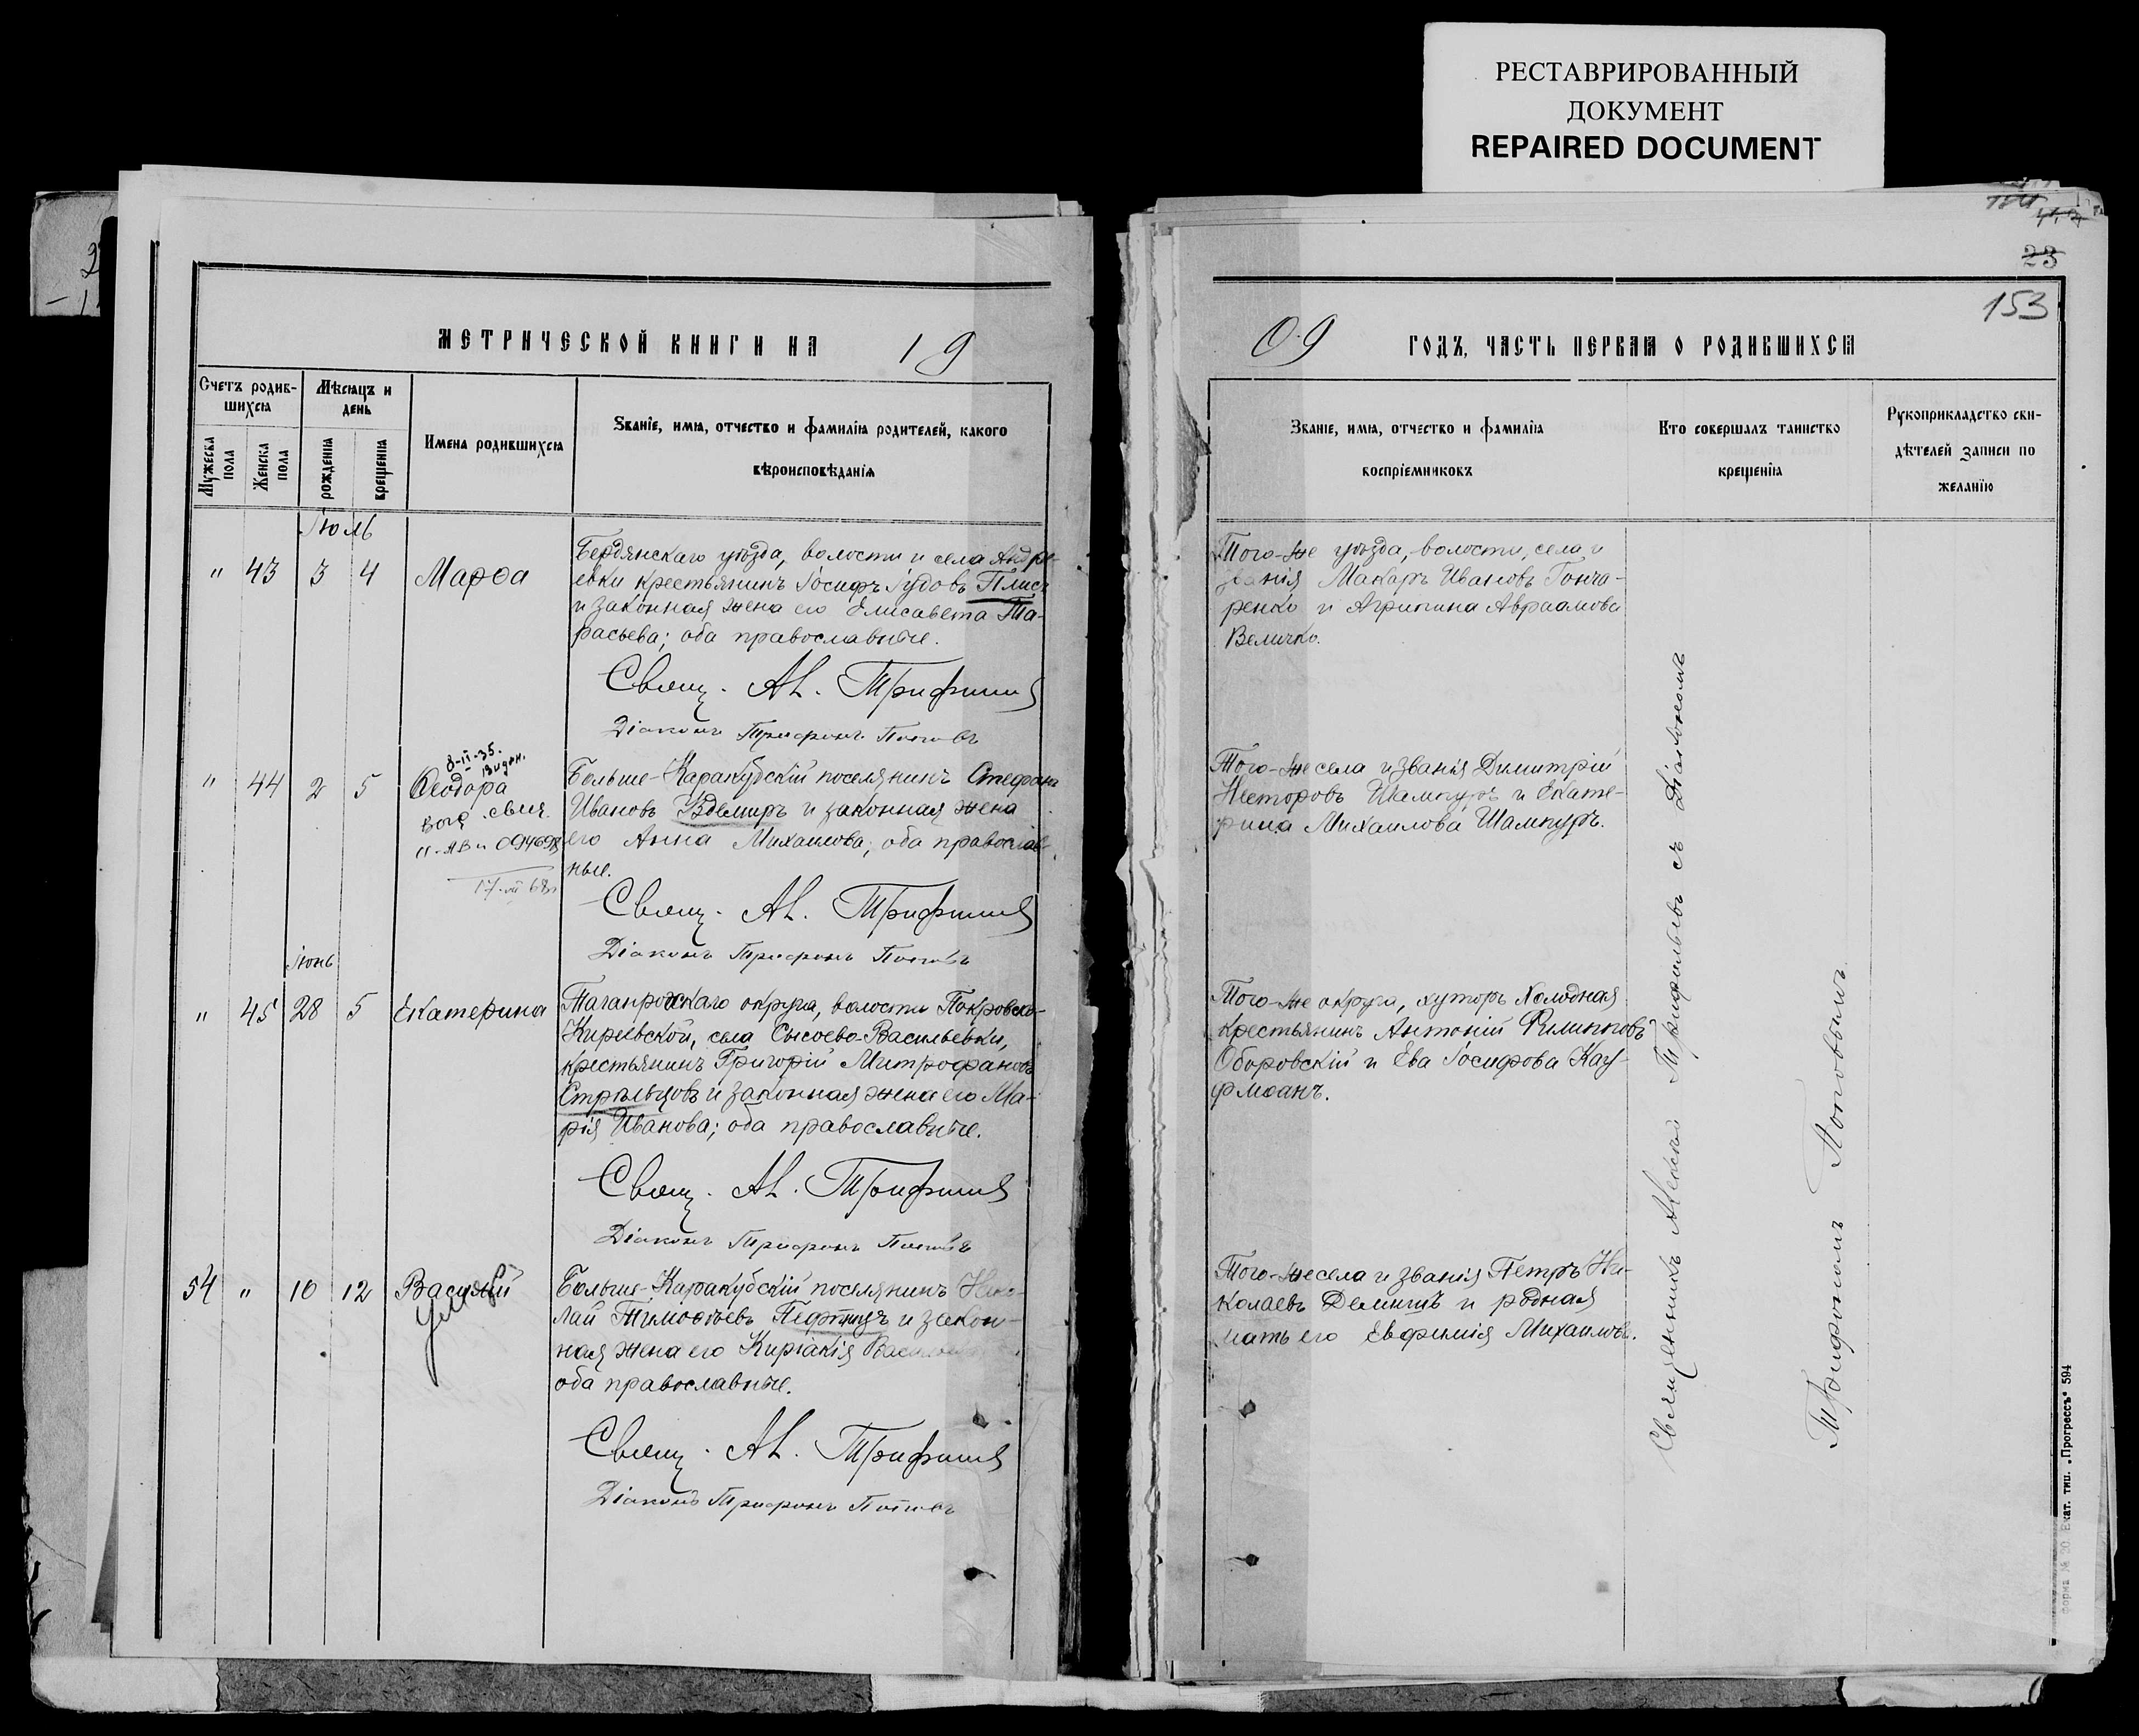 РЕСТАВРИРОВАННЫЙ
ДОКУМЕНТ
REPAIRED DOCUMENT
23
153
МЕТРИЧЕСКОЙ КНИГИ НА 19
09 ГОДЪ, ЧАСТЬ ПЕРВАЯ О РОДИВШИХСЯ
Счетъ родив-
шихся
Мѣсяцъ и
день
Мужеска
пола
Женска
пола
рожденія
крещенія
Имена родившихся
Званіе, имя, отчество и фамилія родителей, какого
вѣроисповѣданія
Званіе, имя, отчество и фамилія
воспріемниковъ
Кто совершалъ таинство
крещенія
Рукоприкладство сви-
дѣтелей записи по
желанію
Іюль
" 43 3 4 Марѳа
Бердянскаго уѣзда, волости и села Андре-
евки крестьянинъ Іосифъ Іудовъ Плисъ
и законная жена его Елисавета Та-
расьева; оба православные.
Свящ. Ал.
Діаконъ Трифонъ Поповъ
Того-же уѣзда, волости, села и
званія Макаръ Ивановъ Гонча-
ренко и Агрипина Авраамова
Величко.
8-II-35.
Видан.
" 44 2 5 Ѳеодора
094698
Больше-Каракубскій поселянинъ Стефанъ
Ивановъ и законная жена
его Анна Михаилова; оба православ-
ные.
Свящ. Ал.
Діаконъ Трифонъ Поповъ
Того-же села и званія Димитрій
Несторовъ Шампуръ и Екате-
рина Михаилова Шампуръ.
Іюнь
" 45 28 5 Екатерина
Таганрогскаго округа, волости Покровско-
Кирѣевской, села Сысоево-Васильевки,
крестьянинъ Григорій Митрофановъ
Стрѣльцовъ и законная жена его Ма-
рія Иванова; оба православные.
Свящ. Ал.
Діаконъ Трифонъ Поповъ
Того-же округа, хуторъ Холодная
крестьянинъ Антоній Филипповъ
Оборовскій и Ева Іосифова Кау-
фманъ.
54 " 10 12 Василій
умеръ
Больше-Каракубскій поселянинъ Нико-
лай Тимоѳеевъ Пефтіцъ и закон-
ная жена его Киріакія
оба православные.
Свящ. Ал.
Діаконъ Трифонъ Поповъ
Того-же села и званія Петръ Ни-
колаевъ и родная
мать его Евфимія Михаилова.
Священникъ Алексій съ Діакономъ
Трифономъ Поповымъ
Форма № 20 Екат. тип. „Прогрессъ“ 594